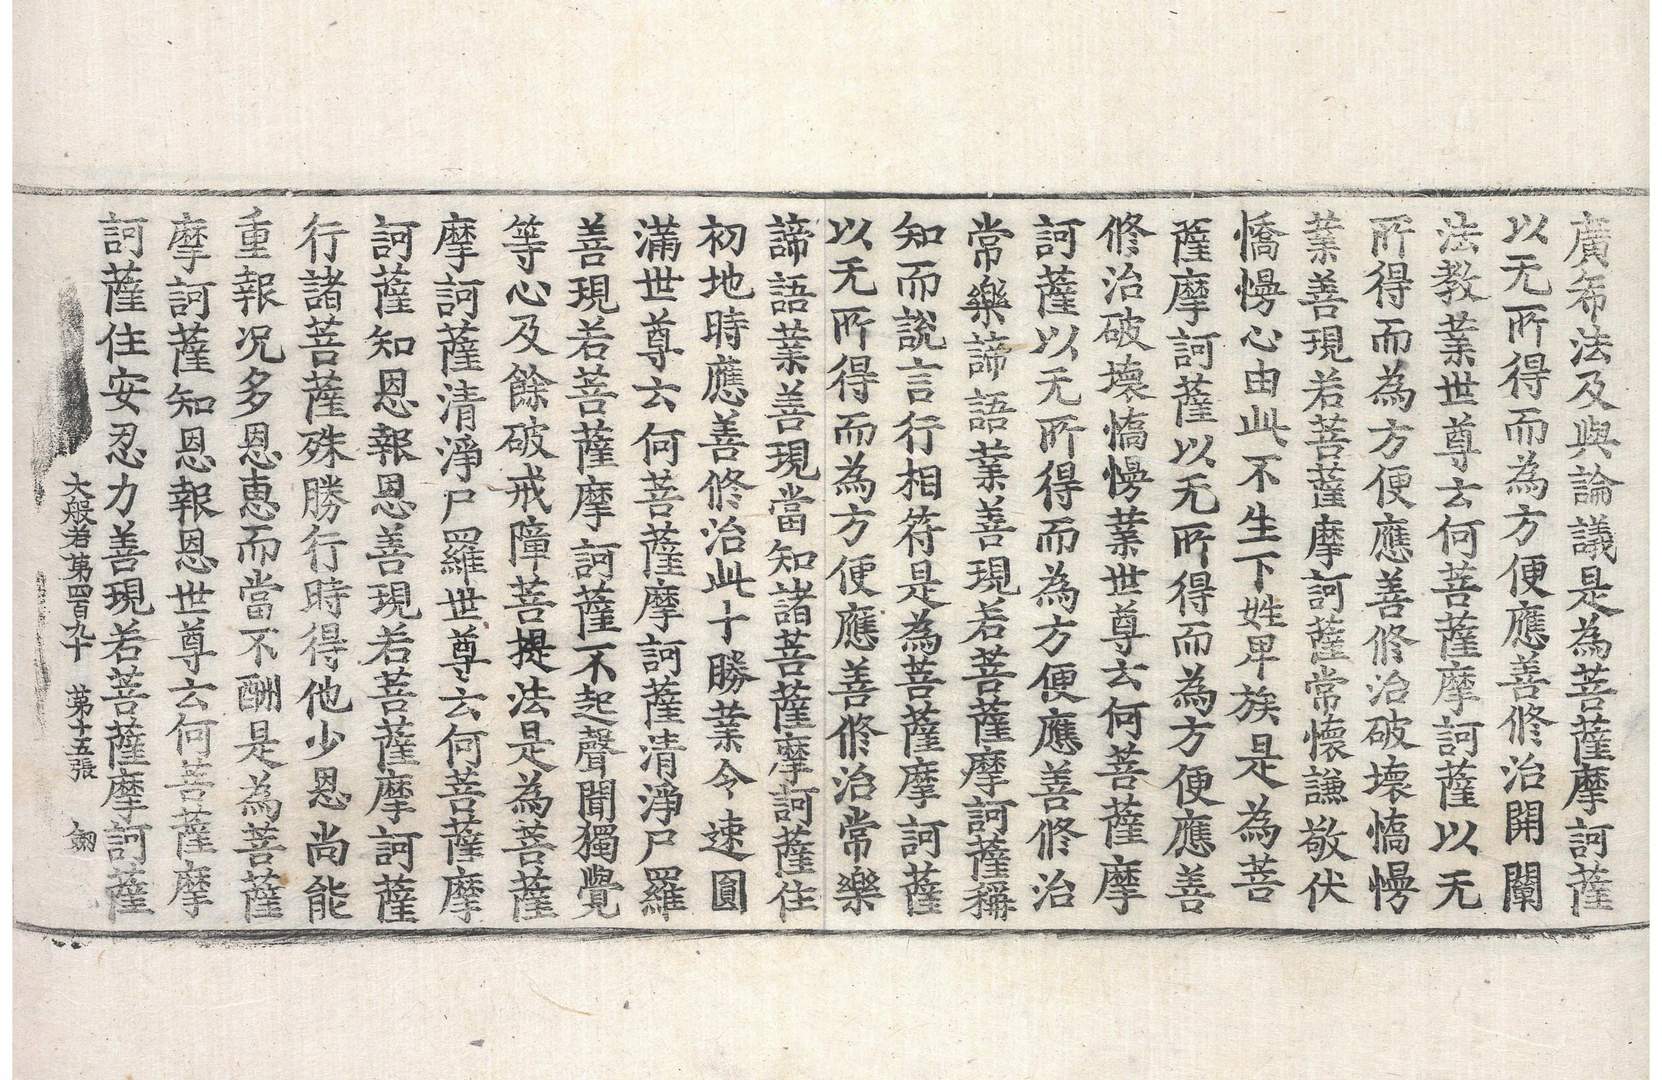 廣布法及與論議是為菩薩摩訶薩
以无所得而為方便應善修治開闡
法教業世尊云何菩薩摩訶薩以无
所得而為方便應善修治破壞憍慢
業善現若菩薩摩訶薩常懷謙敬伏
憍慢心由此不生下姓卑族是為菩
薩摩訶薩以无所得而為方便應善
修治破壞憍慢業世尊云何菩薩摩
訶薩以无所得而為方便應善修治
常樂諦語業善現若菩薩摩訶薩稱
知而說言行相符是為菩薩摩訶薩
以无所得而為方便應善修治常樂
諦語業善現當知諸菩薩摩訶薩住
初地時應善修治此十勝業令速圓
滿世尊云何菩薩摩訶薩清淨尸羅
善現若菩薩摩訶薩不起聲聞獨覺
等心及餘破戒障菩提法是為菩薩
摩訶薩清淨尸羅世尊云何菩薩摩
訶薩知恩報恩善現若菩薩摩訶薩
行諸菩薩殊勝行時得他少恩尚能
重報况多恩恵而當不酬是為菩薩
摩訶薩知恩報恩世尊云何菩薩摩
訶薩住安忍力善現若菩薩摩訶薩
大般若第四百九十 第十五張 劒